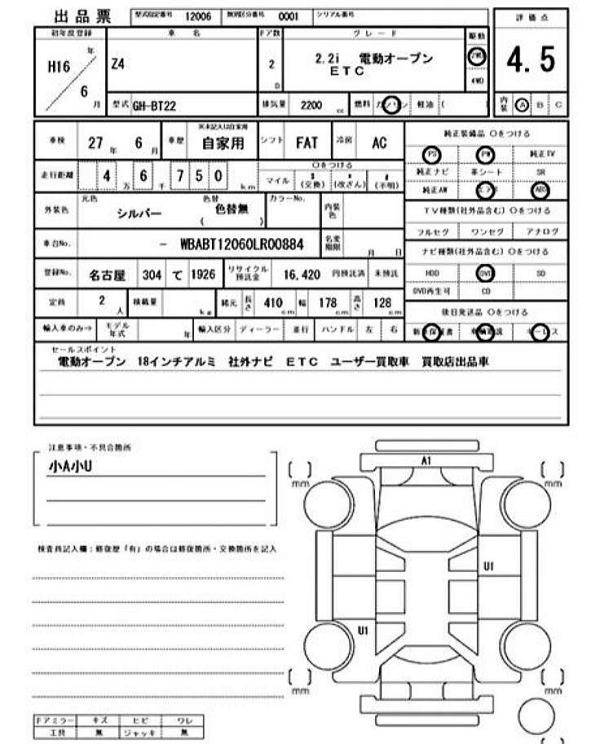 出品票 型式指定番号 12006 類別区分番号 0001 シリアル番号
評価点
4.5
内装 A B C
初年度登録 車名 ドア数 グレード 駆動
H16 年 6 月 Z4 2 D 2.2i 電動オープン ETC 2WD 4WD
型式 GH-BT22 排気量 2200 cc 燃料 ガソリン 軽油 (
車検 27 年 6 月 車歴 ※未記入は自家用 自家用 シフト FAT 冷房 AC
走行距離 4 万 6 千 7 5 0 km
○をつける
マイル $ (交換) * (改ざん) # (不明)
外装色 元色 シルバー 色替 色替無 ( ) カラーNo. 内装色
車台No. - WBABT12060LR00884 名変期限 月 日
登録No. 名古屋 304 て 1926 リサイクル預託金 16,420 円預託済 未預託
定員 2 人 積載量 kg 諸元 長さ 410 cm 幅 178 cm 高さ 128 cm
輸入車のみ→ モデル年式 年 輸入区分 ディーラー 並行 ハンドル 左 右
純正装備品 ○をつける
PS PW 純正TV
純正ナビ 革シート SR
純正AW エアB ABS
TV種類(社外品含む) ○をつける
フルセグ ワンセグ アナログ
ナビ種類(社外品含む) ○をつける
HDD DVD SD
DVD再生可 CD
後日発送品 ○をつける
新車保証書 車輌取説 キーレス
セールスポイント
電動オープン 18インチアルミ 社外ナビ ETC ユーザー買取車 買取店出品車
注意事項・不具合箇所
小A小U
検査員記入欄:修復歴「有」の場合は修復箇所・交換箇所を記入
A1
( ) mm
( ) mm
U1
U1
( ) mm
( ) mm
ドアミラー キズ ヒビ ワレ
工具 無 ジャッキ 無